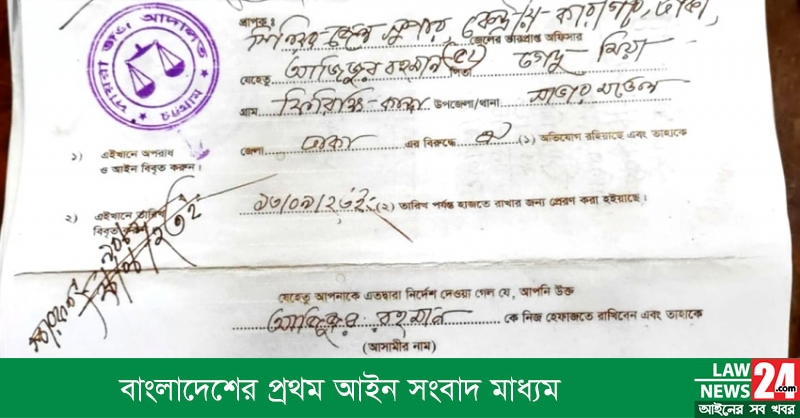 প্রাপক :
সিনিয়র জেল সুপার, কেন্দ্রীয় কারাগার, ঢাকা,
জেলের ভারপ্রাপ্ত অফিসার
যেহেতু আজিজুর রহমান পিতা মিয়া
গ্রাম উপজেলা/থানা সাভার মডেল
১) এইখানে অপরাধ ও আইন বিবৃত করুন।
জেলা ঢাকা এর বিরুদ্ধে (১) অভিযোগ রহিয়াছে এবং তাহাকে
২) এইখানে তারিখ বিবৃত করুন
(২) তারিখ পর্যন্ত হাজতে রাখার জন্য প্রেরণ করা হইয়াছে।
যেহেতু আপনাকে এতদ্বারা নির্দেশ দেওয়া গেল যে, আপনি উক্ত
আজিজুর রহমান কে নিজ হেফাজতে রাখিবেন এবং তাহাকে
(আসামীর নাম)
বাংলাদেশের প্রথম আইন সংবাদ মাধ্যম
LAW NEWS 24.com
আইনের সব খবর